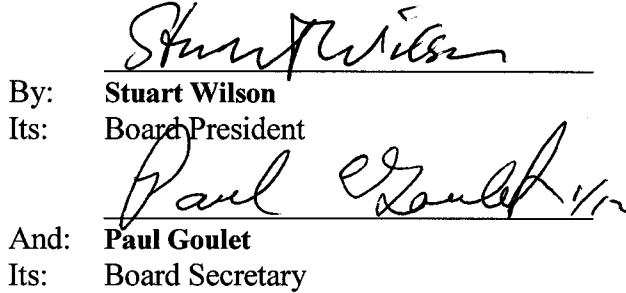 Stuart Wilson
By: Stuart Wilson
Its: Board President
Paul Goulet
And: Paul Goulet
Its: Board Secretary